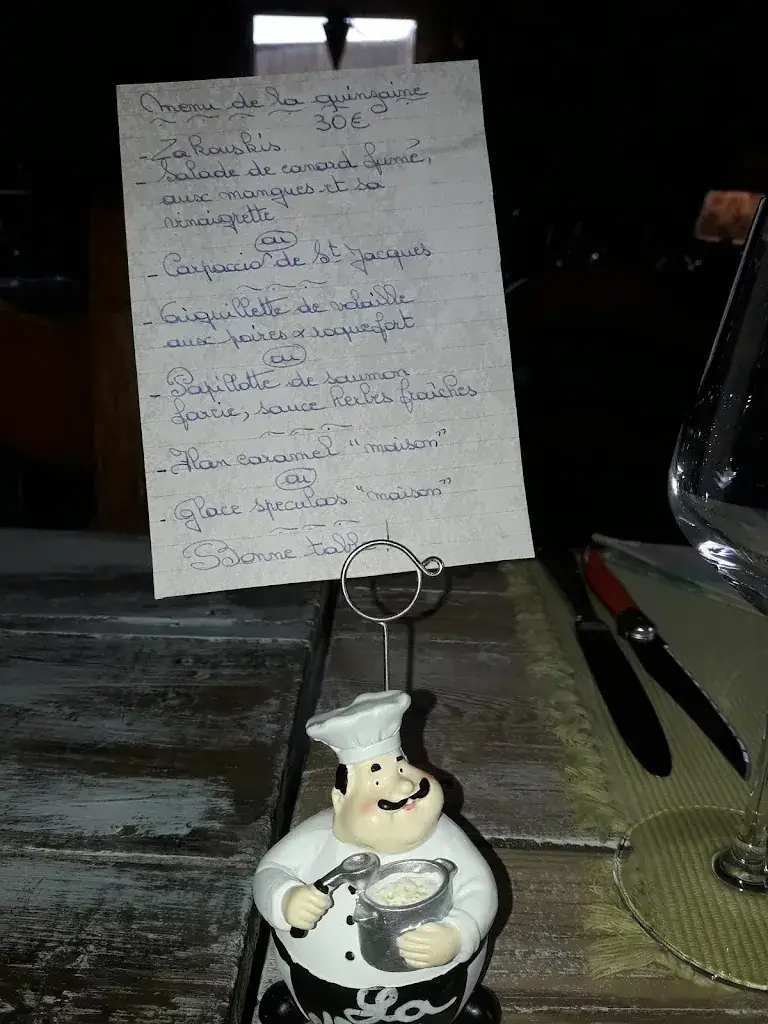 Menu de la quinzaine
30€
- Zakouskis.
- Salade de canard fumé,
aux mangues et sa
vinaigrette
ou
- Carpaccio de St Jacques
- Aiguillette de volaille
aux poires & roquefort
ou
- Papillotte de saumon
farcie, sauce herbes fraîches
- Flan caramel "maison"
ou
- Glace speculoos "maison"
Bonne
La